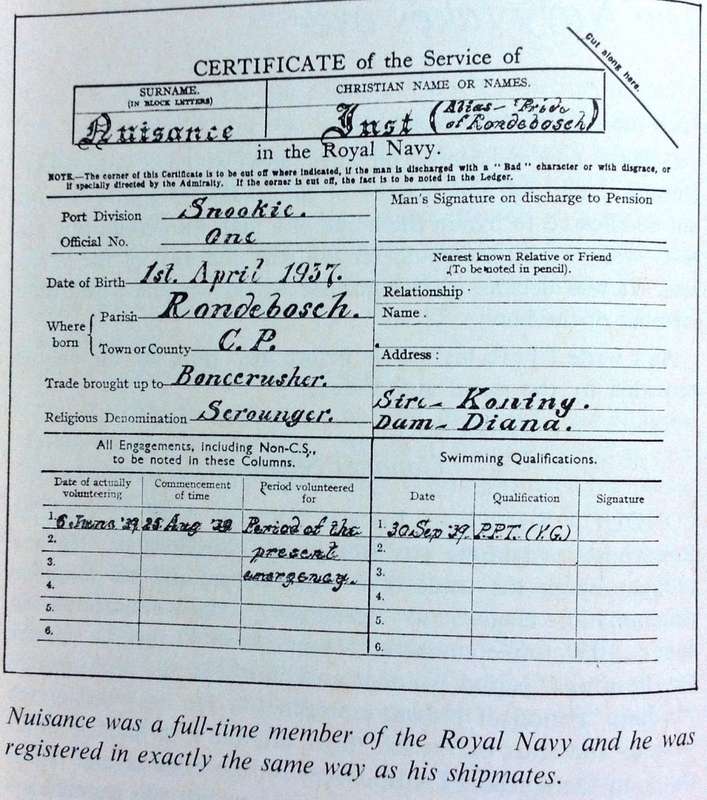 Cut along here.
CERTIFICATE of the Service of
SURNAME.
(IN BLOCK LETTERS)
CHRISTIAN NAME OR NAMES.
Nuisance
Just (Alias - "Pride
of Rondebosch)
in the Royal Navy.
NOTE.—The corner of this Certificate is to be cut off where indicated, if the man is discharged with a "Bad" character or with disgrace, or
if specially directed by the Admiralty. If the corner is cut off, the fact is to be noted in the Ledger.
Port Division Snookie.
Official No. One
Man's Signature on discharge to Pension
Date of Birth 1st. April 1937.
Where born
Parish Rondebosch.
Town or County C.P.
Nearest known Relative or Friend
(To be noted in pencil).
Relationship
Name.
Address:
Trade brought up to Bonecrusher.
Religious Denomination Scrounger.
Sire- Koning.
Dam- Diana.
All Engagements, including Non-C.S.,
to be noted in these Columns.
Swimming Qualifications.
Date of actually
volunteering
Commencement
of time
Period volunteered
for
Date
Qualification
Signature
1. 6 June '39 25 Aug '39 Period of the
2. present
3. emergency.
4.
5.
6.
1. 30 Sep '39. P.P.T. (V.G.)
2.
3.
4.
5.
6.
Nuisance was a full-time member of the Royal Navy and he was
registered in exactly the same way as his shipmates.